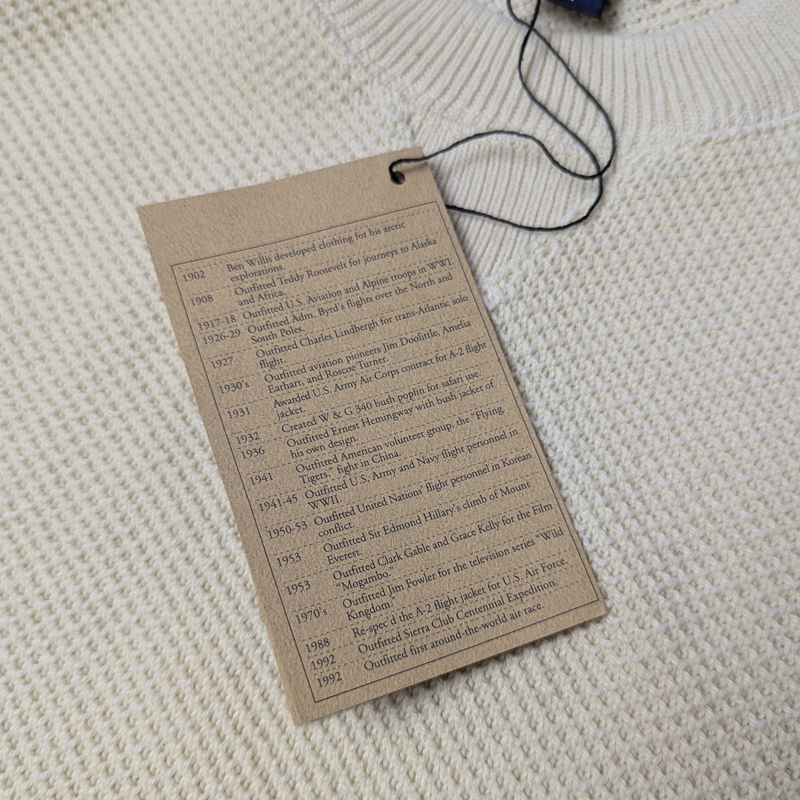 1902 Ben Willis developed clothing for his arctic
explorations.
1908 Outfitted Teddy Roosevelt for journeys to Alaska
and Africa.
1917-18 Outfitted U.S. Aviation and Alpine troops in WWI.
1926-29 Outfitted Adm. Byrd's flights over the North and
South Poles.
1927 Outfitted Charles Lindbergh for trans-Atlantic solo
flight.
1930's Outfitted aviation pioneers Jim Doolittle, Amelia
Earhart, and Roscoe Turner.
1931 Awarded U.S. Army Air Corps contract for A-2 flight
jacket.
1932 Created W & G 340 bush poplin for safari use.
1936 Outfitted Ernest Hemingway with bush jacket of
his own design.
1941 Outfitted American volunteer group, the "Flying
Tigers," fight in China.
1941-45 Outfitted U.S. Army and Navy flight personnel in
WWII.
1950-53 Outfitted United Nations' flight personnel in Korean
conflict.
1953 Outfitted Sir Edmond Hillary's climb of Mount
Everest.
1953 Outfitted Clark Gable and Grace Kelly for the Film
"Mogambo."
1970's Outfitted Jim Fowler for the television series "Wild
Kingdom."
1988 Re-spec'd the A-2 flight jacket for U.S. Air Force.
1992 Outfitted Sierra Club Centennial Expedition.
1992 Outfitted first around-the-world air race.